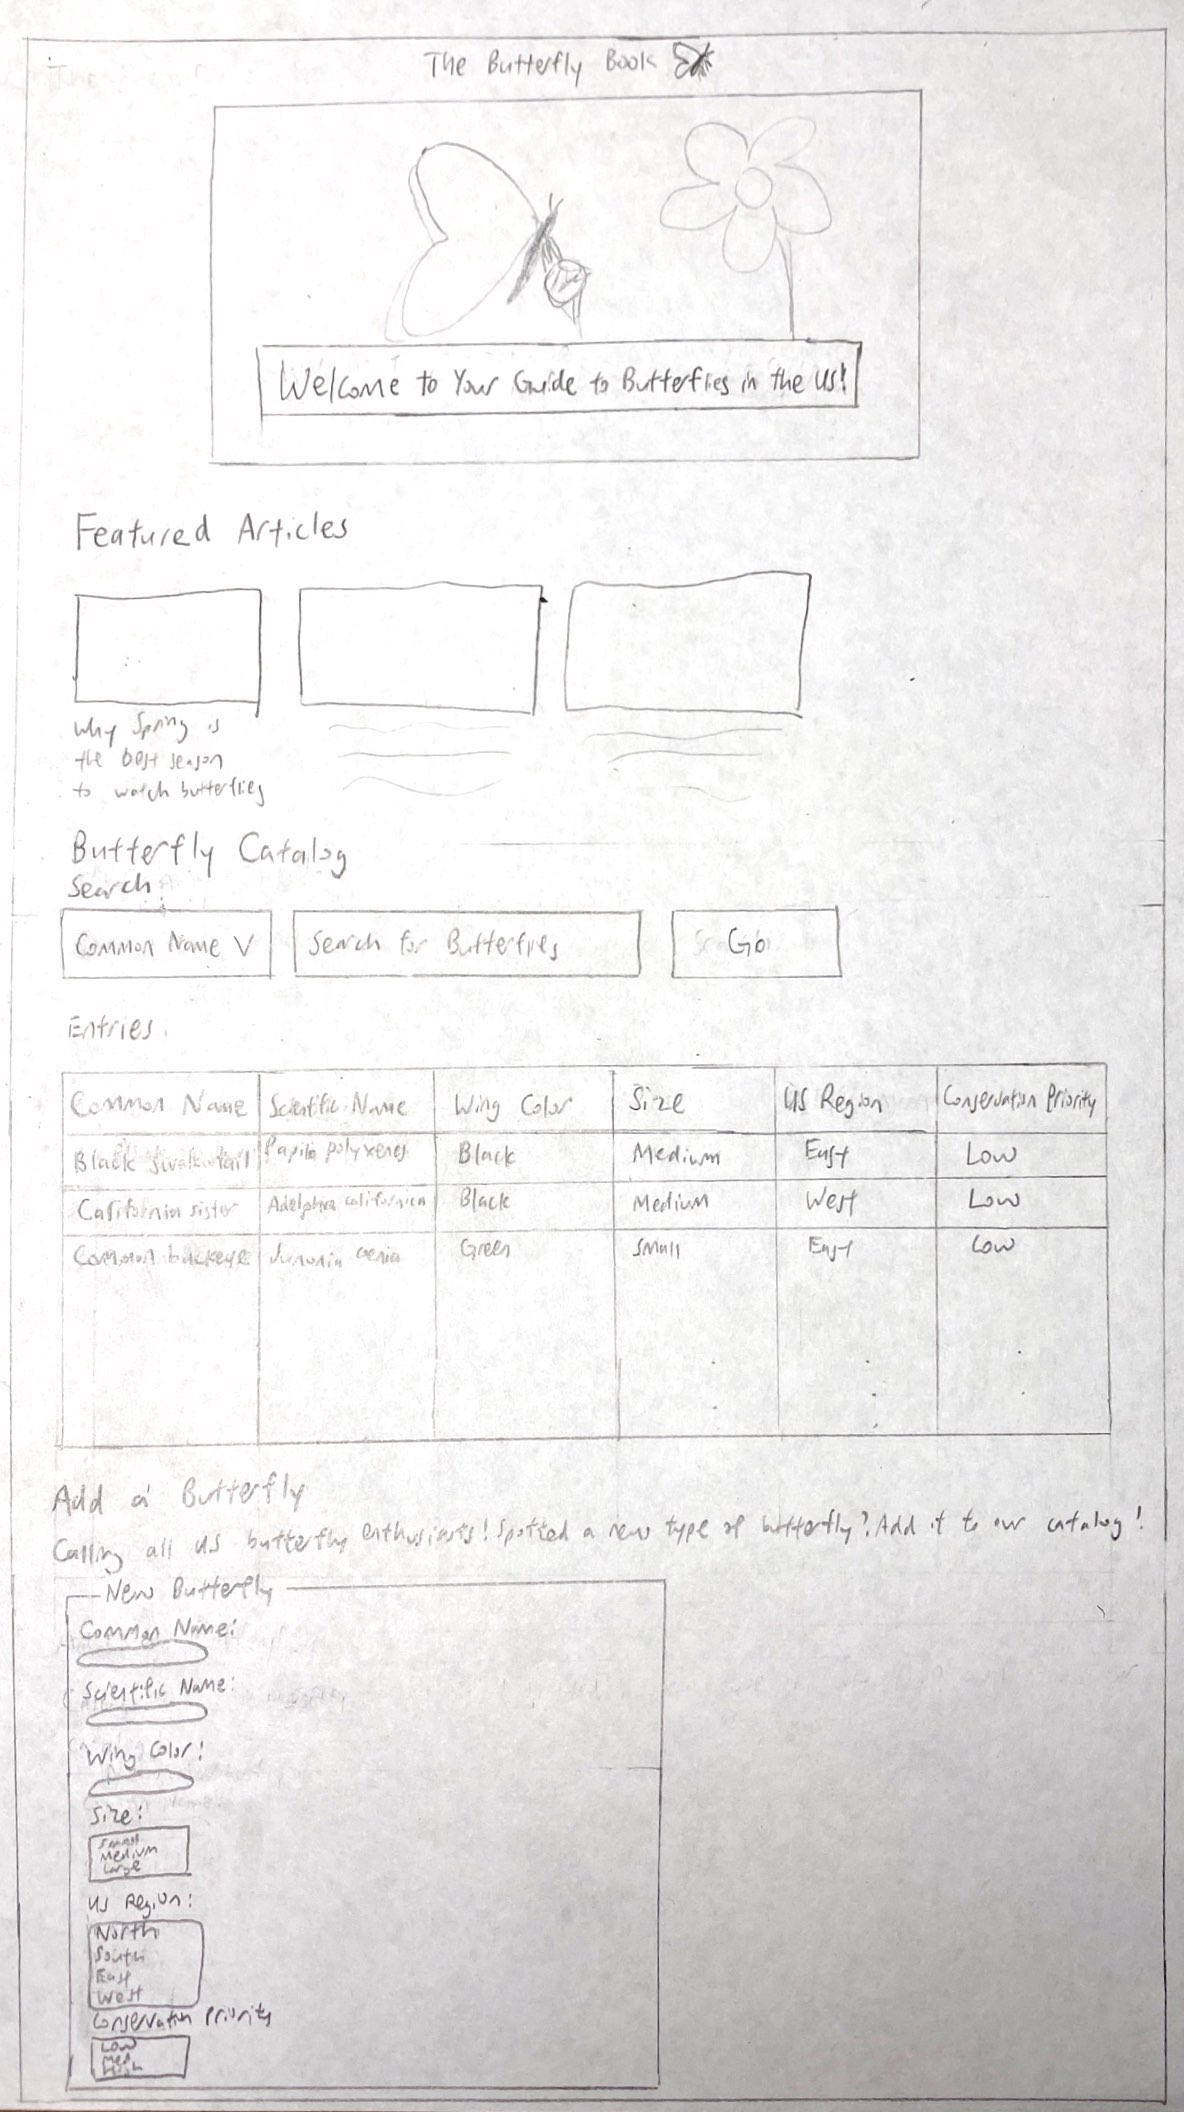 The Butterfly Book
Welcome to Your Guide to Butterflies in the US!
Featured Articles
Why Spring is
the best season
to watch butterflies
Butterfly Catalog
Search:
Common Name V
Search for Butterflies
Go
Entries:
Common Name Scientific Name Wing Color Size US Region Conservation Priority
Black swallowtail Papilio polyxenes Black Medium East Low
California sister Adelpha californica Black Medium West Low
Common buckeye Junonia coenia Green Small East Low
Add a Butterfly
Calling all US butterfly enthusiasts! Spotted a new type of butterfly? Add it to our catalog!
New Butterfly
Common Name:
Scientific Name:
Wing Color:
Size:
Small
Medium
Large
US Region:
North
South
East
West
Conservation Priority
Low
Med
High